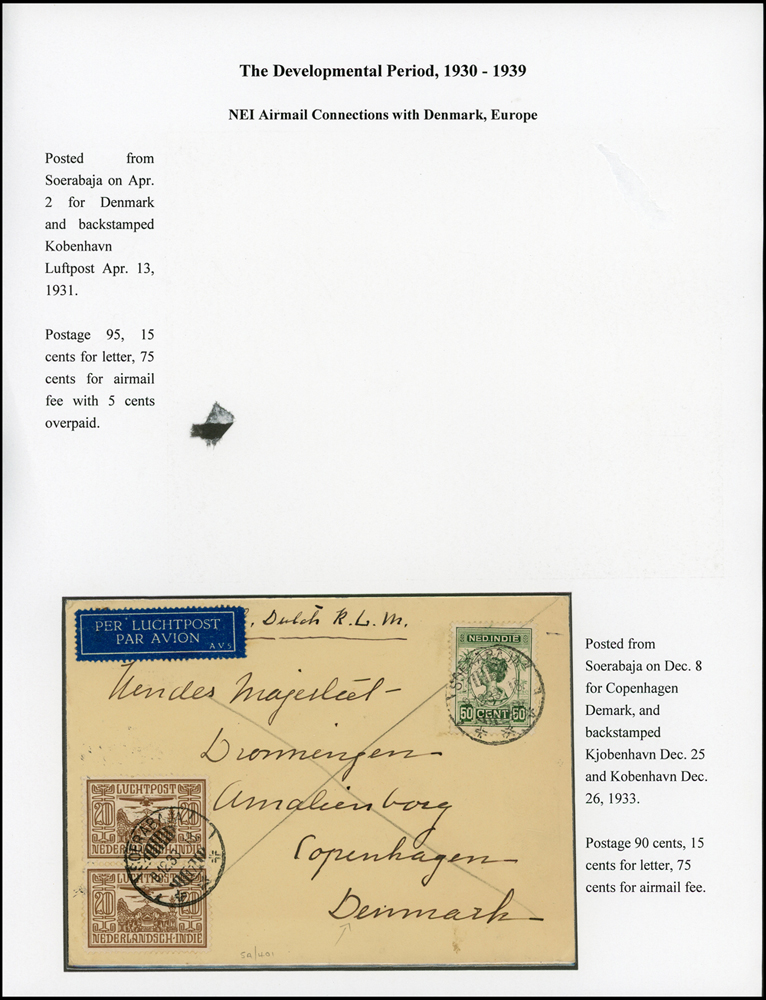 The Developmental Period, 1930 - 1939
NEI Airmail Connections with Denmark, Europe
Posted from
Soerabaja on Apr.
2 for Denmark
and backstamped
Kobenhavn
Luftpost Apr. 13,
1931.
Postage 95, 15
cents for letter, 75
cents for airmail
fee with 5 cents
overpaid.
PER LUCHTPOST
PAR AVION
AV5
Dutch K.L.M.
NED INDIE
50 CENT 50
SOERABAJA
Hendes Majestæt
Dronningen
Amalienborg
Copenhagen
Denmark
LUCHTPOST
20 20
NEDERLANDSCH-INDIE
SOERABAJA
LUCHTPOST
20 20
NEDERLANDSCH-INDIE
Posted from
Soerabaja on Dec. 8
for Copenhagen
Demark, and
backstamped
Kjobenhavn Dec. 25
and Kobenhavn Dec.
26, 1933.
Postage 90 cents, 15
cents for letter, 75
cents for airmail fee.